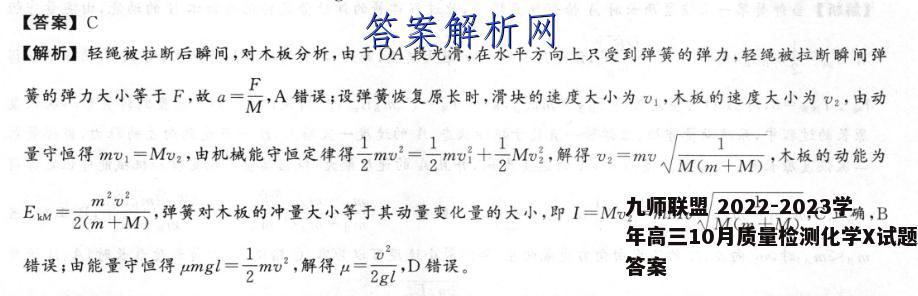 【答案】C
答案解析网
【解析】轻绳被拉断后瞬间,对木板分析,由于OA段光滑,在水平方向上只受到弹簧的弹力,轻绳被拉断瞬间弹
簧的弹力大小等于F,故a=F/M,A错误;设弹簧恢复原长时,滑块的速度大小为v₁,木板的速度大小为v₂,由动
量守恒得mv₁=Mv₂,由机械能守恒定律得1/2mv²=1/2mv₁²+1/2Mv₂²,解得v₂=mv√(1/(M(m+M))),木板的动能为
E_kM=m²v²/(2(m+M)),弹簧对木板的冲量大小等于其动量变化量的大小,即I=Mv₂ 确,B
九师联盟 2022-2023学
年高三10月质量检测化学X试题
答案
错误;由能量守恒得μmgl=1/2mv²,解得μ=v²/(2gl),D错误。